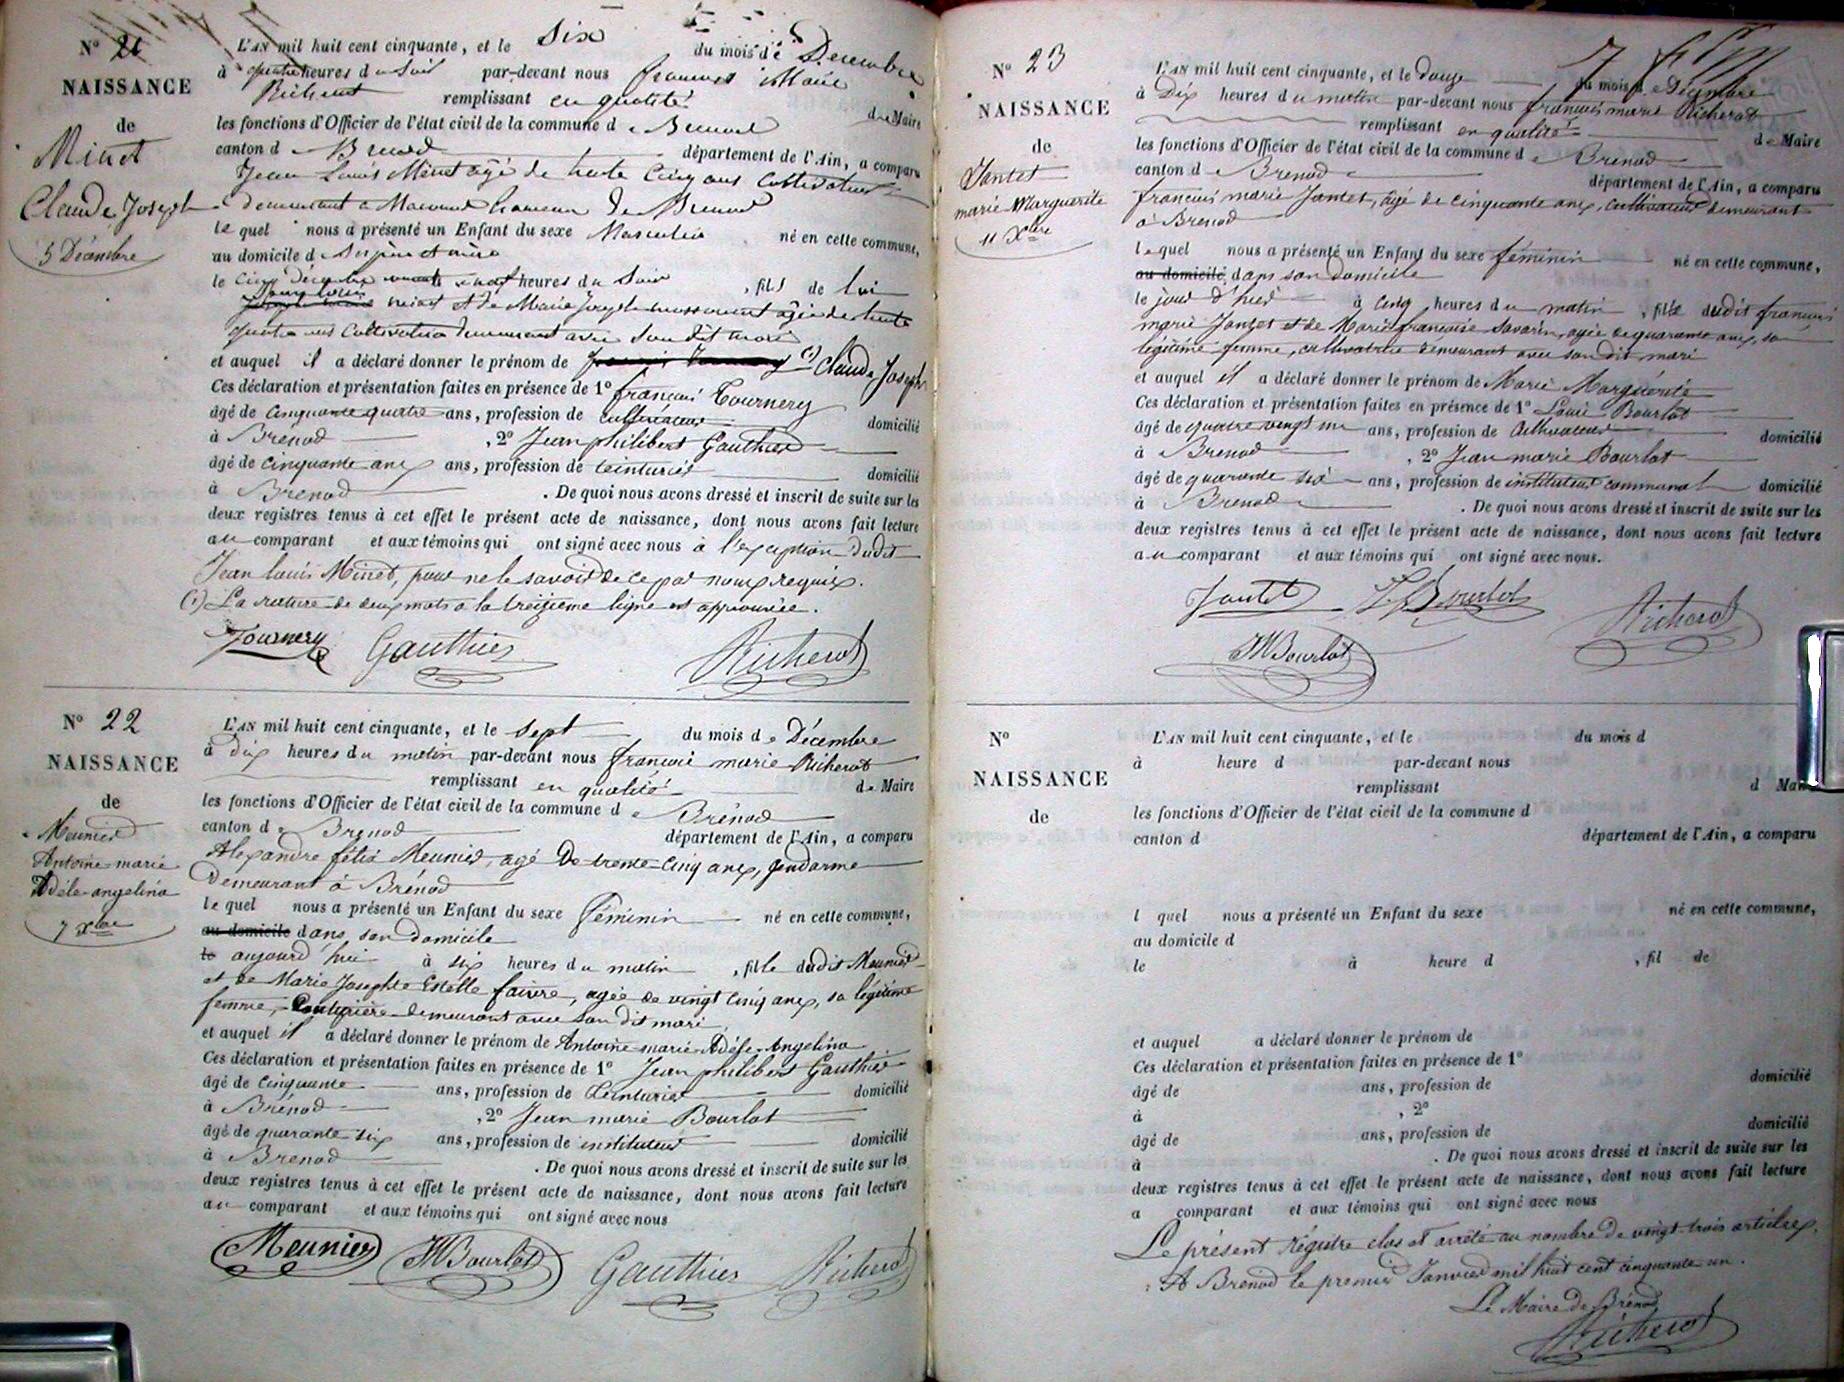 N° 21
NAISSANCE
de
Minet
Claude Joseph
5 Décembre
L'AN mil huit cent cinquante, et le six du mois de Décembre
à quatre heures du Soir par-devant nous françois Marie
Richerot remplissant en qualité de Maire
les fonctions d'Officier de l'état civil de la commune de Brenod
canton de Brenod département de l'Ain, a comparu
Jean Louis Minet âgé de trente cinq ans Cultivateur
demeurant a Macconod hameau de Brenod
lequel nous a présenté un Enfant du sexe Masculin né en cette commune,
au domicile de ses père et mère
le cinq décembre heures du Soir, fils de lui
Minet et de Marie Josephe âgée de trente
quatre ans Cultivatrice demeurant avec son dit mari
et auquel il a déclaré donner le prénom de (1) Claude Joseph
Ces déclaration et présentation faites en présence de 1° françois Tournery
âgé de cinquante quatre ans, profession de cultivateur domicilié
à Brénod, 2° Jean philibert Gauthier
âgé de cinquante ans ans, profession de teinturier domicilié
à Brenod. De quoi nous avons dressé et inscrit de suite sur les
deux registres tenus à cet effet le présent acte de naissance, dont nous avons fait lecture
au comparant et aux témoins qui ont signé avec nous à l'exception dudit
Jean louis Minet, pour ne le savoir de ce par nous requis.
(1) La rature de deux mots a la treizieme ligne est approuvée.
Tournery Gauthier Richerot
N° 22
NAISSANCE
de
Meunier
Antoine marie
Adèle-angelina
7 Xbre
L'AN mil huit cent cinquante, et le sept du mois de Décembre
à dix heures du matin par-devant nous françois marie Richerot
remplissant en qualité de Maire
les fonctions d'Officier de l'état civil de la commune de Brénod
canton de Brenod département de l'Ain, a comparu
Alexandre félix Meunier, agé de trente-cinq ans, gendarme
demeurant à Brénod
lequel nous a présenté un Enfant du sexe féminin né en cette commune,
au domicile dans son domicile
le aujourd'hui à six heures du matin, fille dudit Meunier
et de Marie Josephte Estelle faivre, agée de vingt cinq ans, sa légitime
femme, Couturière demeurant avec son dit mari
et auquel il a déclaré donner le prénom de Antoine-marie-Adèle-Angelina
Ces déclaration et présentation faites en présence de 1° Jean philibert Gauthier
âgé de cinquante ans, profession de teinturier domicilié
à Brénod, 2° Jean marie Bourlot
âgé de quarante six ans, profession de instituteur domicilié
à Brenod. De quoi nous avons dressé et inscrit de suite sur les
deux registres tenus à cet effet le présent acte de naissance, dont nous avons fait lecture
au comparant et aux témoins qui ont signé avec nous
Meunier JMBourlot Gauthier Richerot
N° 23
NAISSANCE
de
Jantet
marie Marguerite
11 Xbre
L'AN mil huit cent cinquante, et le douze du mois de Décembre
à Dix heures du matin par-devant nous françois marie Richerot
remplissant en qualité de Maire
les fonctions d'Officier de l'état civil de la commune de Brenod
canton de Brenod département de l'Ain, a comparu
françois marie Jantet, âgé de cinquante ans, cultivateur demeurant
à Brenod
lequel nous a présenté un Enfant du sexe féminin né en cette commune,
au domicile dans son domicile
le jour d'hier à cinq heures du matin, fille dudit françois
marie Jantet et de Marie françoise Savarin, agée de quarante ans, sa
légitime femme, cultivatrice demeurant avec son dit mari
et auquel il a déclaré donner le prénom de Marie Marguerite
Ces déclaration et présentation faites en présence de 1° Louis Bourlot
âgé de quatre vingt un ans, profession de Cultivateur domicilié
à Brenod, 2° Jean marie Bourlot
âgé de quarante six ans, profession de instituteur communal domicilié
à Brenod. De quoi nous avons dressé et inscrit de suite sur les
deux registres tenus à cet effet le présent acte de naissance, dont nous avons fait lecture
au comparant et aux témoins qui ont signé avec nous.
Jantet L Bourlot Richerot
JMBourlot
N°
NAISSANCE
de
L'AN mil huit cent cinquante, et le du mois d
à heure d par-devant nous
remplissant d Maire
les fonctions d'Officier de l'état civil de la commune d
canton d département de l'Ain, a comparu
l quel nous a présenté un Enfant du sexe né en cette commune,
au domicile d
le à heure d, fil de
et auquel a déclaré donner le prénom de
Ces déclaration et présentation faites en présence de 1°
âgé de ans, profession de domicilié
à, 2°
âgé de ans, profession de domicilié
à. De quoi nous avons dressé et inscrit de suite sur les
deux registres tenus à cet effet le présent acte de naissance, dont nous avons fait lecture
a comparant et aux témoins qui ont signé avec nous
Le présent Régistre clos et arrêté au nombre de vingt trois articles.
A Brenod le premier Janvier mil huit cent cinquante un.
Le Maire de Brénod
Richerot